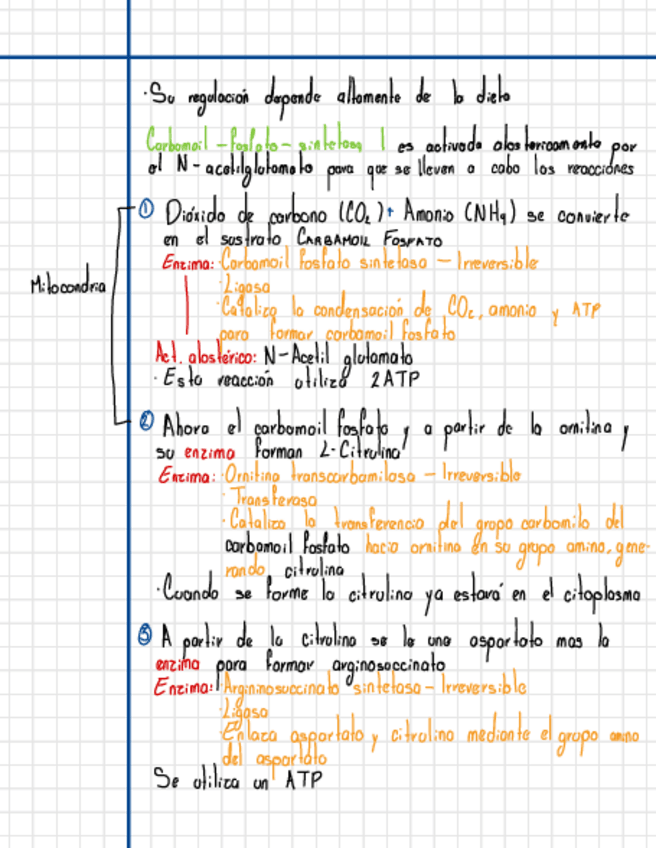 ·Su regulación depende altamente de la dieta
Carbamoil-fosfato-sintetasa I es activada alostericamente por
el N-acetilglutamato para que se lleven a cabo las reacciónes
① Dióxido de carbono (CO₂) + Amonio (NH₄) se convierte
en el sustrato CARBAMOIL FOSFATO
Enzima: ·Carbamoil fosfato sintetasa - Irreversible
Mitocondria
·Ligasa
·Cataliza la condensación de CO₂, amonio y ATP
para formar carbamoil fosfato
Act. alostérico: N-Acetil glutamato
· Esta reacción utiliza 2ATP
② Ahora el carbamoil fosfato y a partir de la ornitina y
su enzima forman L-Citrulina
Enzima: ·Ornitina transcarbamilasa - Irreversible
· Transferasa
· Cataliza la transferencia del grupo carbamilo del
carbamoil fosfato hacia ornitina en su grupo amino, gene-
rando citrulina
·Cuando se forme la citrulina ya estará en el citoplasma
③ A partir de la citrulina se le une aspartato mas la
enzima para formar arginosuccinato
Enzima: Argininosuccinato sintetasa - Irreversible
·Ligasa
·Enlaza aspartato y citrulina mediante el grupo amino
del aspartato
Se utiliza un ATP